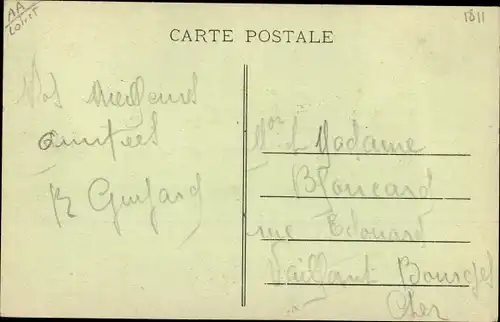 AA
Loiret
1811
CARTE POSTALE
Nos meilleures
amitiés
Mor & Madame
rue Edouard
Vaillant Bourges
Cher